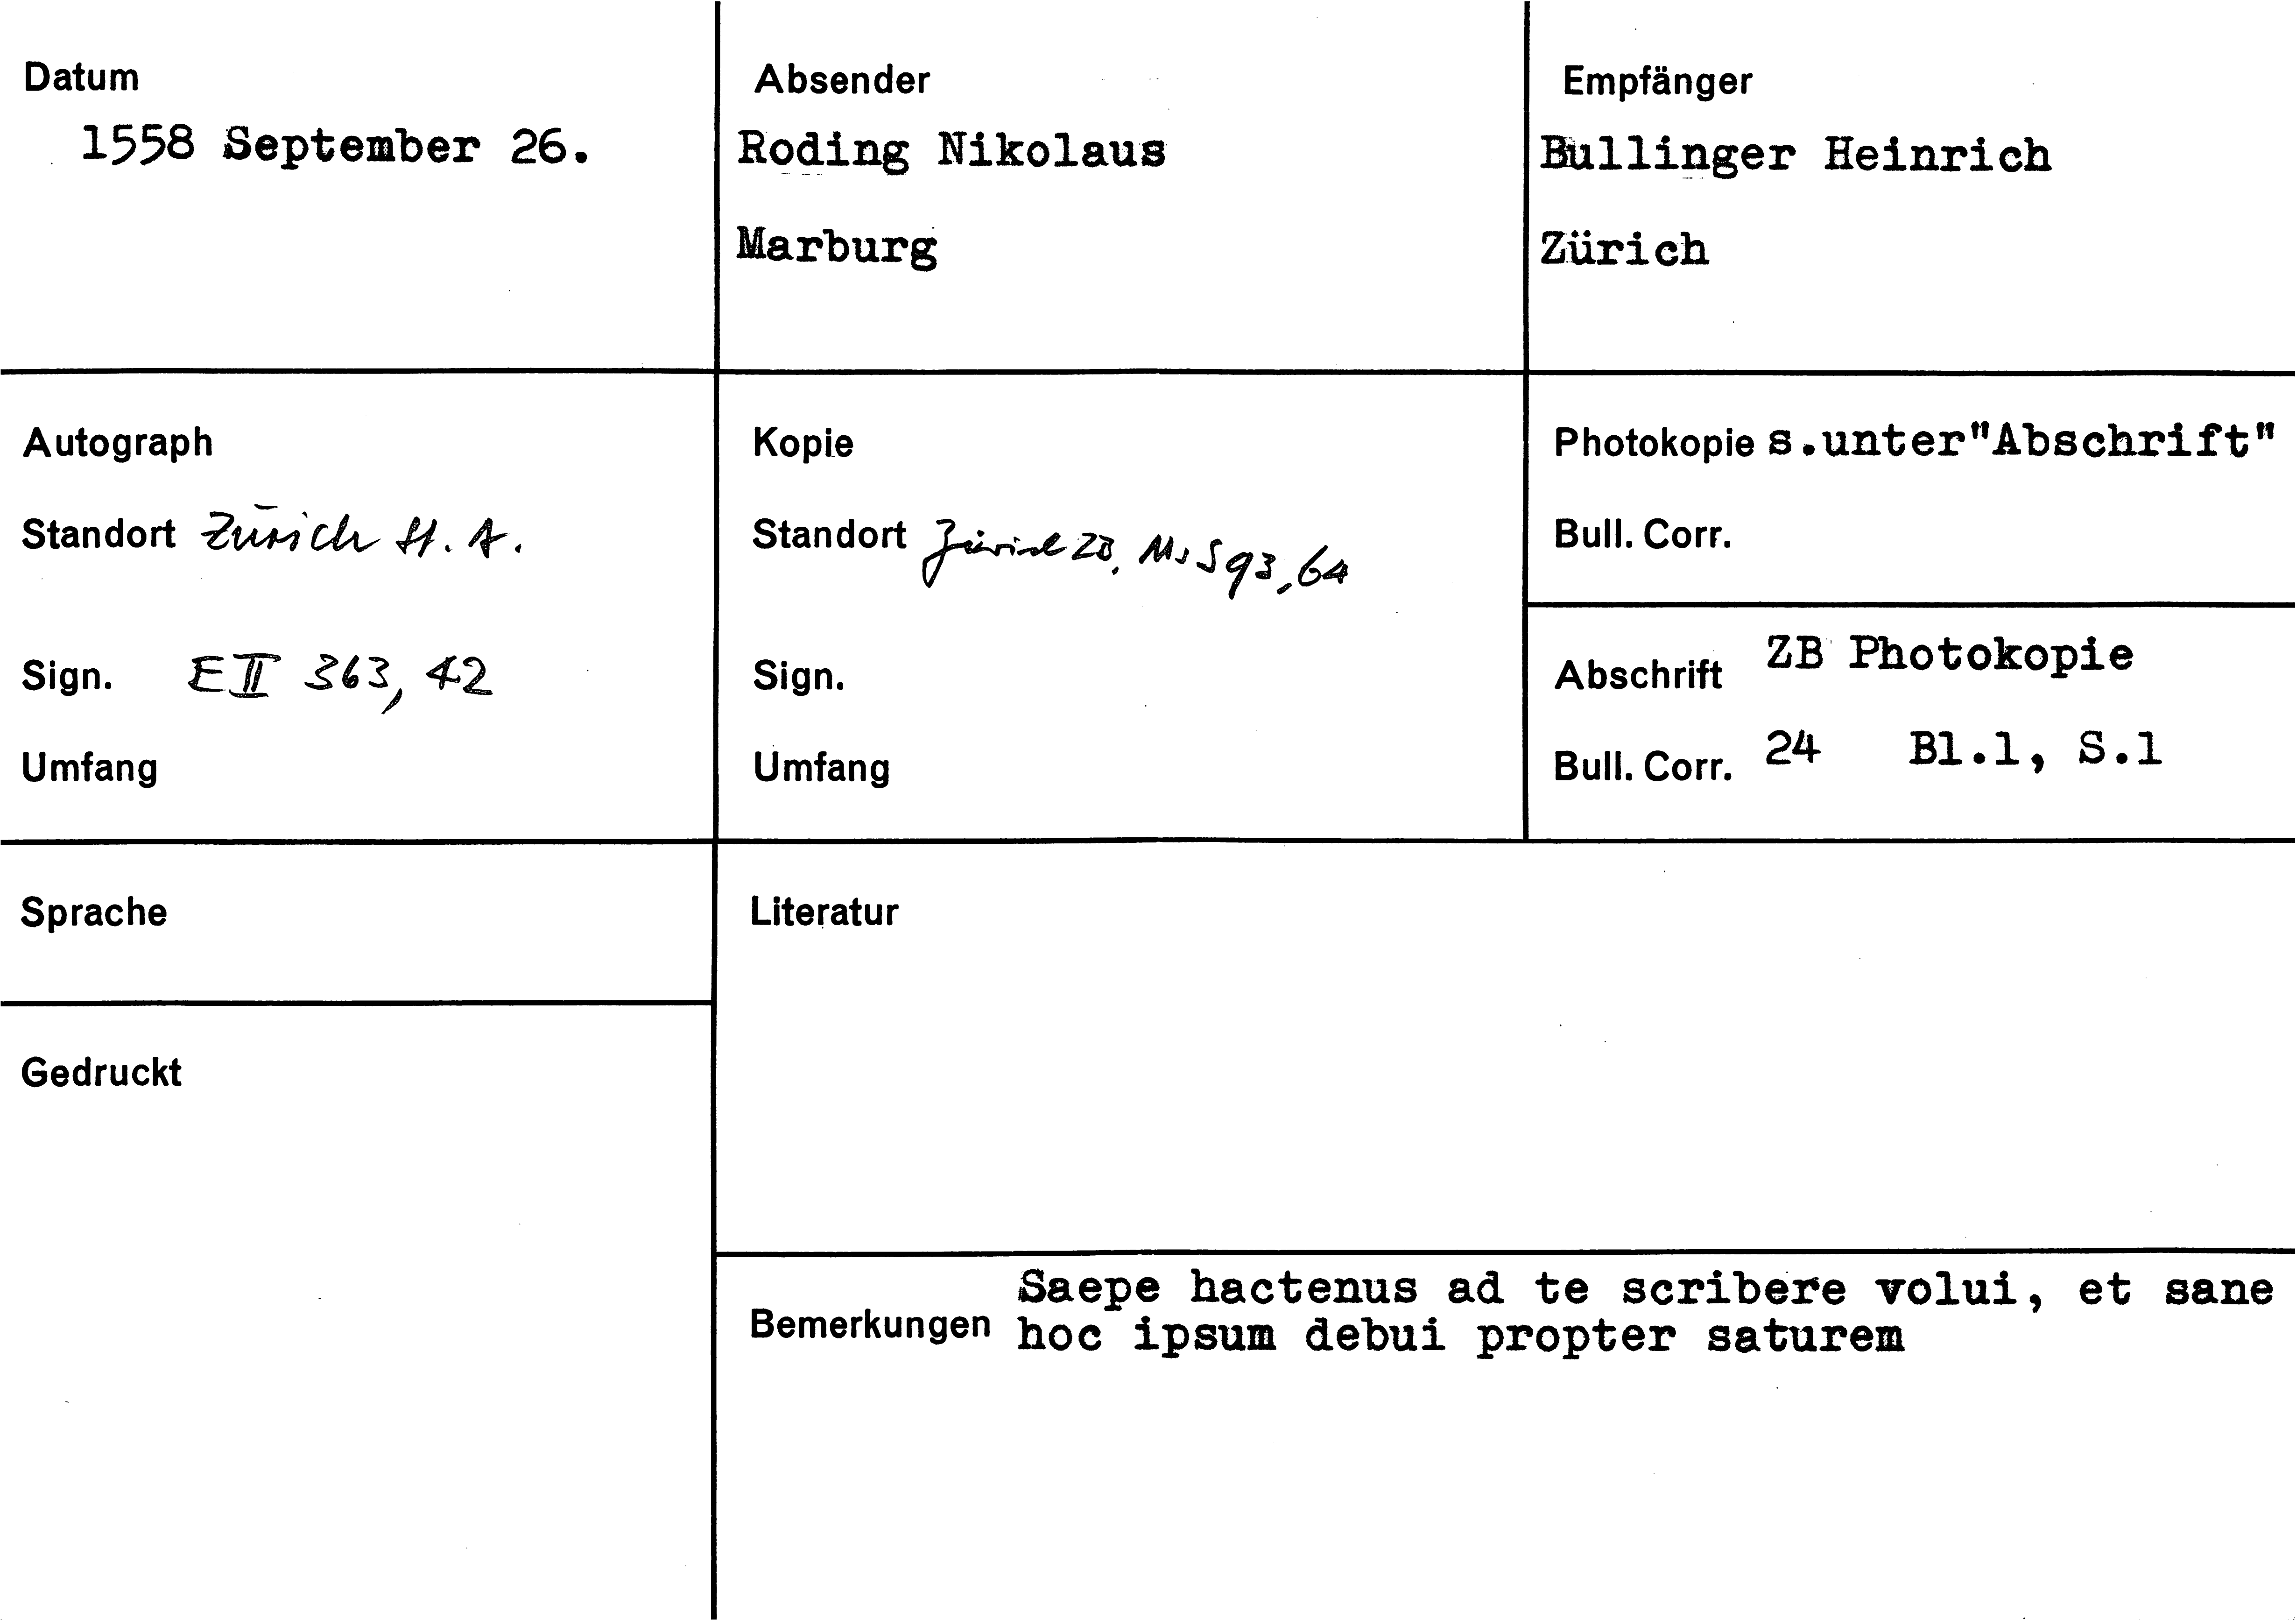 Datum
1558 September 26.
Absender
Roding Nikolaus
Marburg
Empfänger
Bullinger Heinrich
Zürich
Autograph
Standort Zürich St. A.
Sign. E II 363, 42
Umfang
Kopie
Standort Zürich ZB, Ms S 93, 64
Sign.
Umfang
Photokopie s.unter"Abschrift"
Bull. Corr.
Abschrift ZB Photokopie
Bull. Corr. 24 Bl.1, S.1
Sprache
Literatur
Gedruckt
Bemerkungen
Saepe hactenus ad te scribere volui, et sane
hoc ipsum debui propter saturem